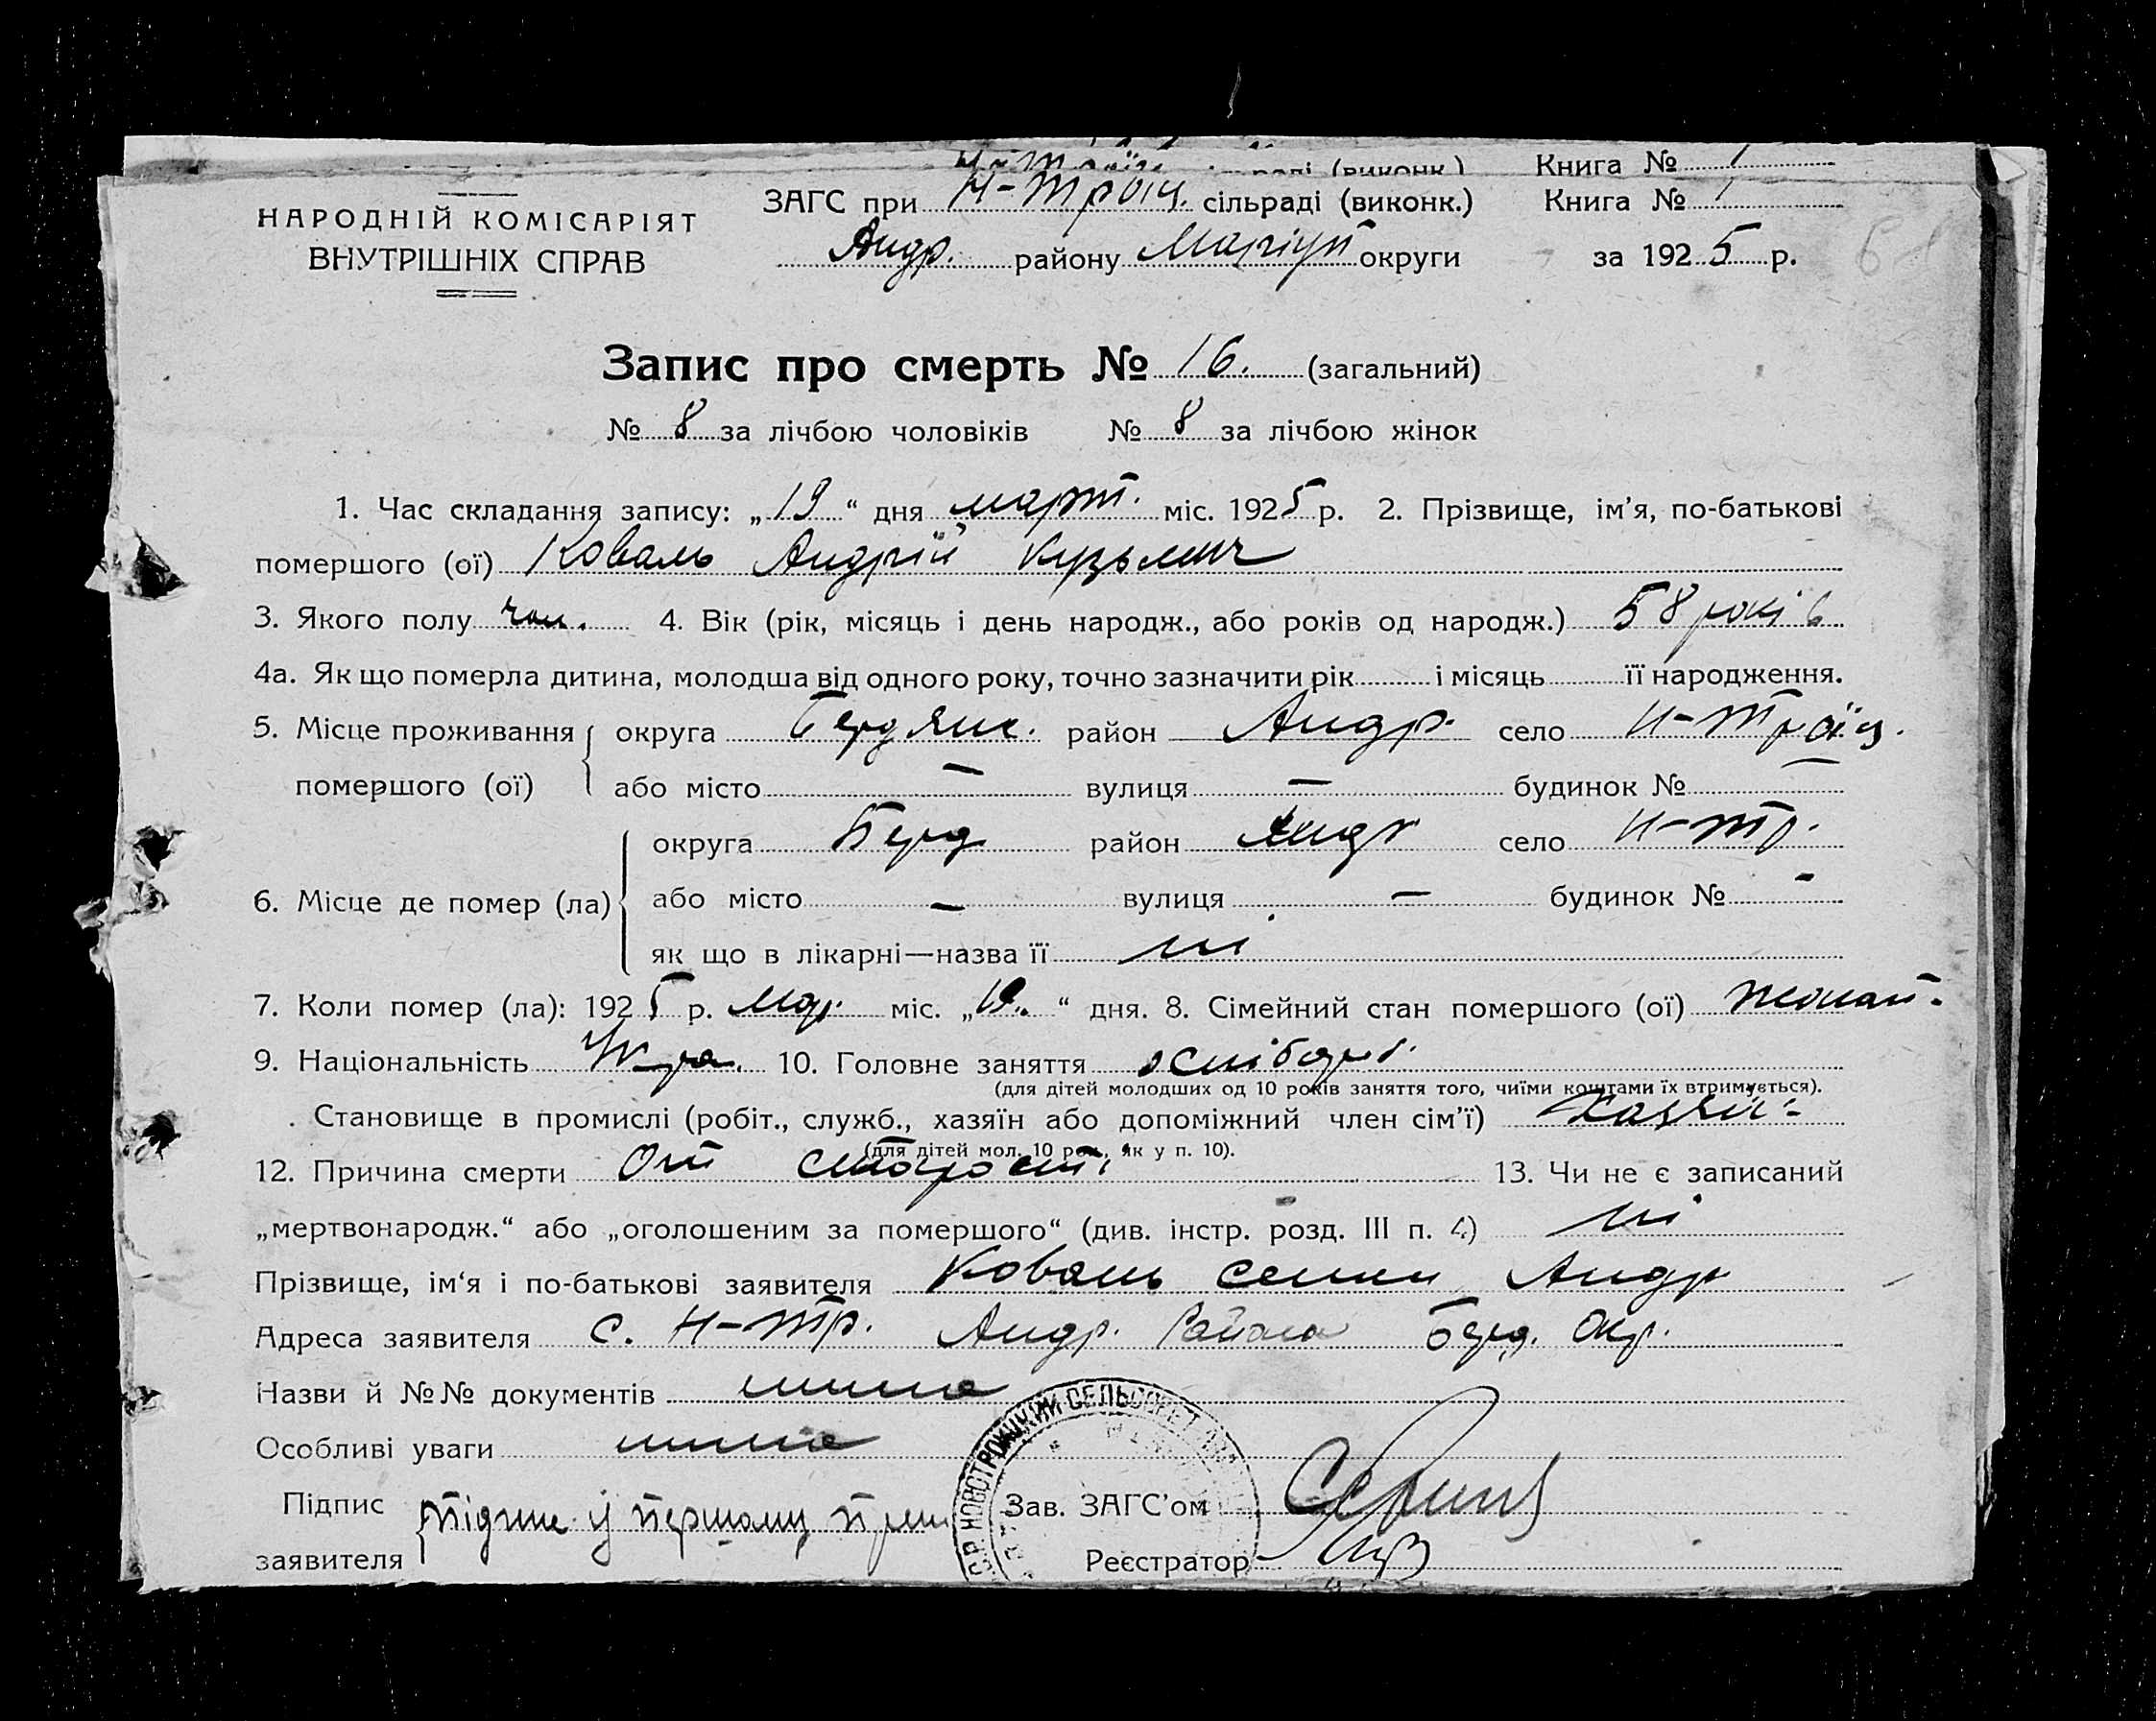 раді (виконк.) Книга № 1
НАРОДНІЙ КОМІСАРІЯТ
ВНУТРІШНІХ СПРАВ
ЗАГС при Н-Троїц. сільраді (виконк.) Книга № 1
Андр. району Маріуп округи за 1925 р.
Запис про смерть № 16. (загальний)
№ 8 за лічбою чоловіків № 8 за лічбою жінок
1. Час складання запису: „19“ дня март. міс. 1925 р. 2. Прізвище, ім’я, по-батькові
помершого (ої) Коваль Андрій Кузьмич
3. Якого полу чол. 4. Вік (рік, місяць і день народж., або років од народж.) 58 років
4а. Як що померла дитина, молодша від одного року, точно зазначити рік і місяць її народження.
5. Місце проживання округа Бердянс. район Андр. село Н-Троїц.
помершого (ої) або місто — вулиця — будинок № —
округа Берд район Андр село Н-Тр.
6. Місце де помер (ла) або місто — вулиця — будинок № -
як що в лікарні—назва її ні
7. Коли помер (ла): 1925 р. мар. міс. „19.“ дня. 8. Сімейний стан помершого (ої) жонат.
9. Національність Укра. 10. Головне заняття хлібороб.
(для дітей молодших од 10 років заняття того, чиїми коштами їх втримується).
. Становище в промислі (робіт., служб., хазяїн або допоміжний член сім’ї) Хазяїн
(для дітей мол. 10 рок., як у п. 10).
12. Причина смерти От старости 13. Чи не є записаний
„мертвонародж.“ або „оголошеним за помершого“ (див. інстр. розд. III п. 4) ні
Прізвище, ім‘я і по-батькові заявителя Коваль Семен Андр
Адреса заявителя с. Н-Тр. Андр. Района Берд. Окр.
Назви й №№ документів нима
Особливі уваги нима
НОВОТРОИЦКИЙ СЕЛЬСОВЕТ
Підпис Підпис у першому прим Зав. ЗАГС’ом
заявителя Реєстратор